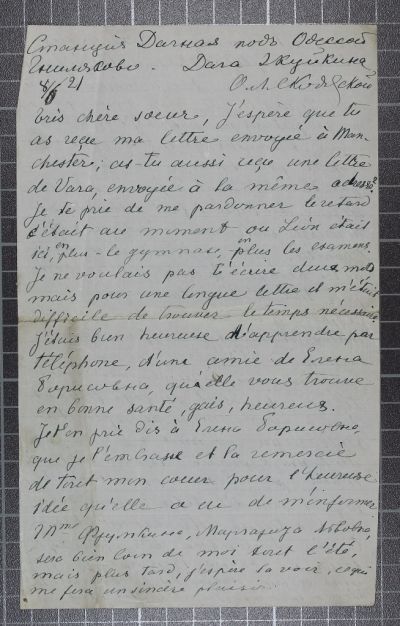 Станция Дачная подъ Одессой
Гниляково. Дача Якушкина
8/6 21 О.Л. 
très chère soeur, J'espère que tu
as reçu ma lettre envoyée à Man-
chester; as-tu aussi reçu une lettre
de Vara, envoyée à la même adresse?
Je te prie de me pardonner le retard
c'était au moment où Léon était
ici, en plus - le gymnase, en plus les examens.
Je ne voulais pas t'écrire deux mots
mais pour une longue lettre il m'était
difficile de trouver le temps nécessaire
J'étais bien heureuse d'apprendre par
téléphone, d'une amie de Елена
Борисовна, qu'elle vous trouve
en bonne santé, gais, heureux.
Je t'en prie dis à Елена Борисовне,
que je l'embrasse et la remercie
de tout mon coeur pour l'heureuse
idée qu'elle a eu de m'informer
Mme Фрумкина, Маргарита Львовна,
sera bien loin de moi tout l'été,
mais plus tard, j'espère la voir, ce qui
me fera un sincère plaisir.